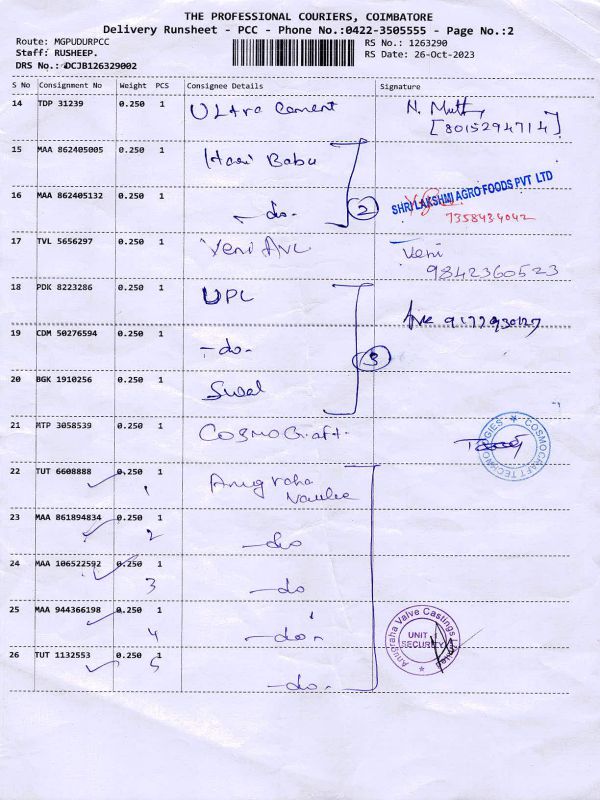 THE PROFESSIONAL COURIERS, COIMBATORE
Delivery Runsheet - PCC - Phone No.:0422-3505555 - Page No.:2
Route: MGPUDURPCC
RS No.: 1263290
Staff: RUSHEEP.
RS Date: 26-Oct-2023
DRS No.: DCJB126329002
S No Consignment No Weight PCS Consignee Details Signature
14 TDP 31239 0.250 1 ULtra Cement
[8015294714]
15 MAA 862405005 0.250 1 Hari Babu
16 MAA 862405132 0.250 1 -do- 2
SHRI LAKSHMI AGRO FOODS PVT LTD
7358434042
17 TVL 5656297 0.250 1 Veni AVC Veni
9842360523
18 PDK 8223286 0.250 1 UPL
19 CDM 50276594 0.250 1 -do- 3
20 BGK 1910256 0.250 1 Swal
21 MTP 3058539 0.250 1 COSMO Craft-
COSMOCRAFT TECHNOLOGIES
22 TUT 6608888 0.250 1 Anugraha
1
23 MAA 861894834 0.250 1 -do
2
24 MAA 106522592 0.250 1 -do
3
25 MAA 944366198 0.250 1 -do-
4
Anugraha Valve Castings Limited
UNIT I
SECURITY
26 TUT 1132553 0.250 1 -do-
5